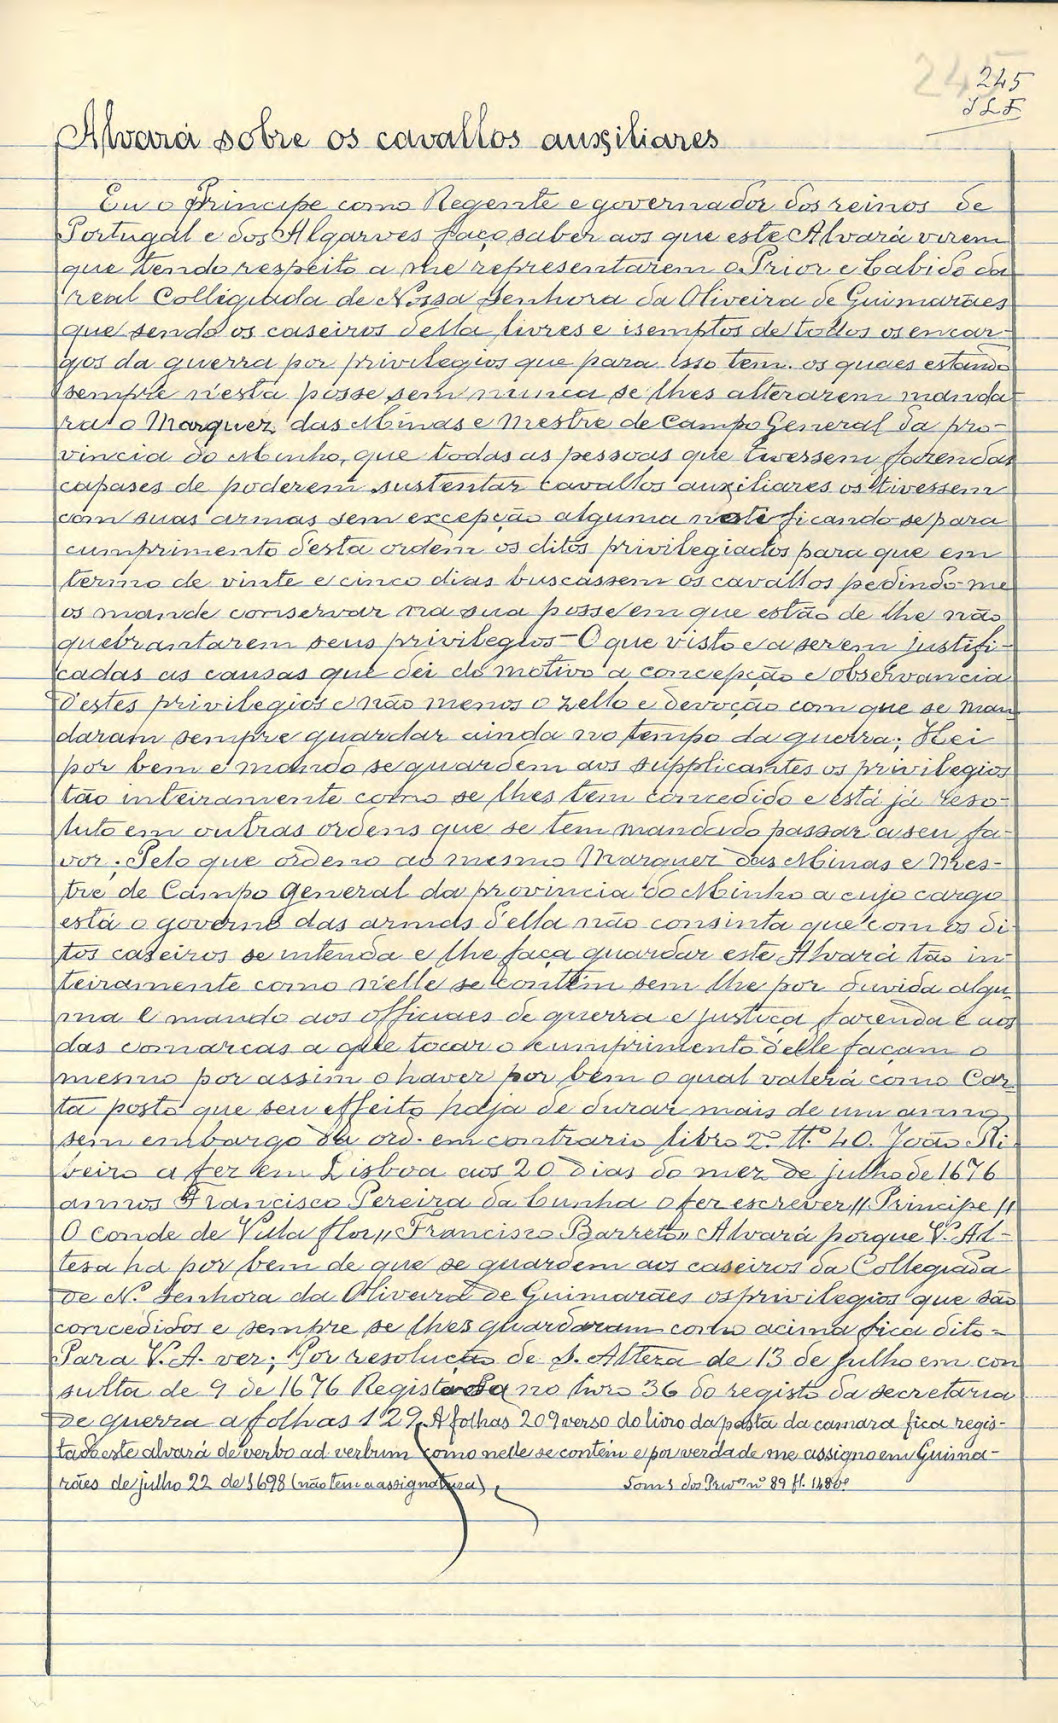 245
245
JLF
Alvará sobre os cavallos auxiliares
Eu o Principe como Regente e governador dos reinos de
Portugal e dos Algarves faço saber aos que este Alvará virem
que tendo respeito a me representarem o Prior e Cabido da
real Collegiada de Nossa Senhora da Oliveira de Guimarães
que sendo os caseiros della livres e isemptos de todos os encar-
gos da guerra por privilegios que para isso tem. os quaes estando
sempre n'esta posse sem nunca se lhes alterarem manda-
ra o Marquez das Minas e Mestre de Campo General da pro-
vincia do Minho, que todas as pessoas que tivessem fazendas
capases de poderem sustentar cavallos auxiliares os tivessem
com suas armas sem excepção alguma noti ficando-se para
cumprimento d'esta ordem os ditos privilegiados para que em
termo de vinte e cinco dias buscassem os cavallos pedindo-me
os mande conservar na sua posse em que estão de lhe não
quebrantarem seus privilegios – O que visto e a serem justifi-
cadas as causas que dei do motivo a concepção e observancia
d'estes privilegios e não menos o zello e devoção com que se man
daram sempre guardar ainda no tempo da guerra; Hei
por bem e mando se guardem aos supplicantes os privilegios
tão inteiramente como se lhes tem concedido e está já reso-
luto em outras ordens que se tem mandado passar a seu fa-
vor; Pelo que ordeno ao mesmo Marquez das Minas e Mes-
tre de Campo General da provincia do Minho a cujo cargo
está o governo das armas d'ella não consinta que com os di-
tos caseiros se intenda e lhe faça guardar este Alvará tão in-
teiramente como n'elle se contem sem lhe por duvida algu-
ma e mando aos officiaes de guerra e justiça fazenda e aos
das comarcas a que tocar o cumprimento d'elle façam o
mesmo por assim o haver por bem o qual valerá como Car-
ta posto que seu effeito haja de durar mais de um anno
sem embargo da ord. em contrario libro 2.º tt.º 40. João Ri
beiro a fez em Lisboa aos 20 dias do mez de julho de 1676
annos Francisco Pereira da Cunha o fez escrever // Principe //
O Conde de Villa flor,, Francisco Barreto,, Alvará porque V. Al-
tesa ha por bem de que se guardem aos caseiros da Collegiada
de N.ª Senhora da Oliveira de Guimarães os privilegios que são
concedidos e sempre se lhes guardaram como acima fica dito=
Para V. A. ver; Por resolução de S. Alteza de 13 de Julho em con
sulta de 9 de 1676 Registada no livro 36 do registo da secretaria
de guerra a folhas 129. A folhas 209 verso do livro da pasta da camara fica regis-
tado este alvará de verbo ad verbum como nelle se contém e por verdade me assigno em Guima-
rães de julho 22 de 1698 (não tem a assignatura)
nº 89 fl. 148